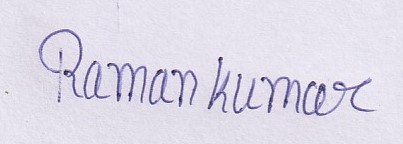 Raman kumar